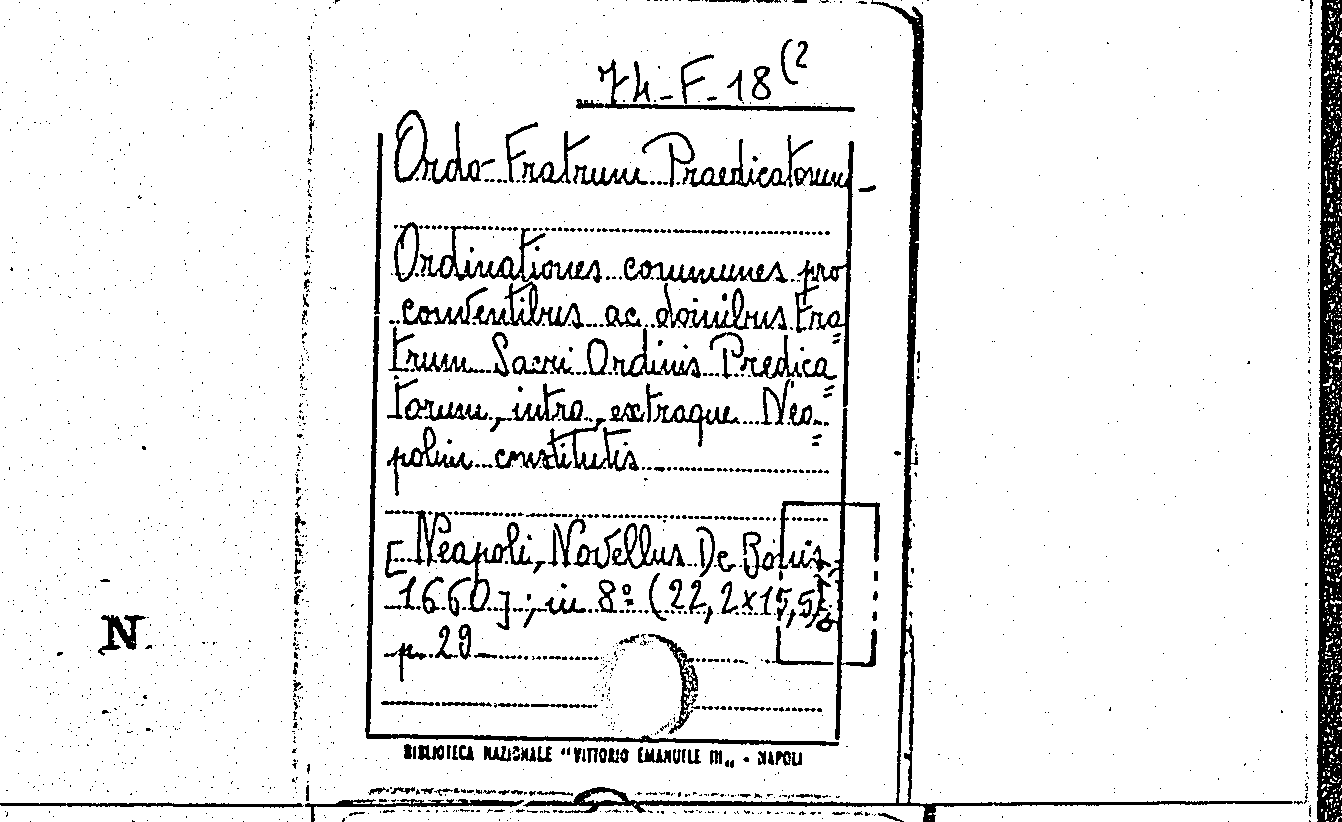 74-F-18(2
Ordo Fratrum Praedicatorum-
Ordinationes communes pro
conventibus ac domibus Fra=
trum Sacri Ordinis Predica=
torum, intra, extraque Nea=
polim constitutis
[Neapoli, Novellus De Bonis,
1660]; in 8º (22,2x15,5)
p. 29
N
BIBLIOTECA NAZIONALE "VITTORIO EMANUELE III„ - NAPOLI